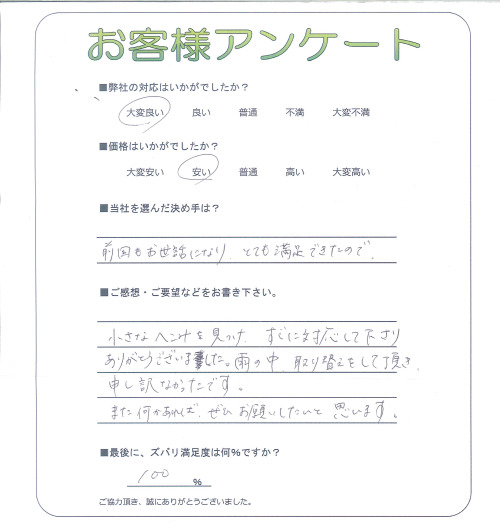 お客様アンケート
■弊社の対応はいかがでしたか？
大変良い 良い 普通 不満 大変不満
■価格はいかがでしたか？
大変安い 安い 普通 高い 大変高い
■当社を選んだ決め手は？
前回もお世話になり、とても満足できたので。
■ご感想・ご要望などをお書き下さい。
小さなヘこみを見つけ、すぐに対応して下さり
ありがとうございました。雨の中、取り替えをして頂き、
申し訳なかったです。
また何かあれば、ぜひお願いしたいと思います。
■最後に、ズバリ満足度は何%ですか？
100 %
ご協力頂き、誠にありがとうございました。